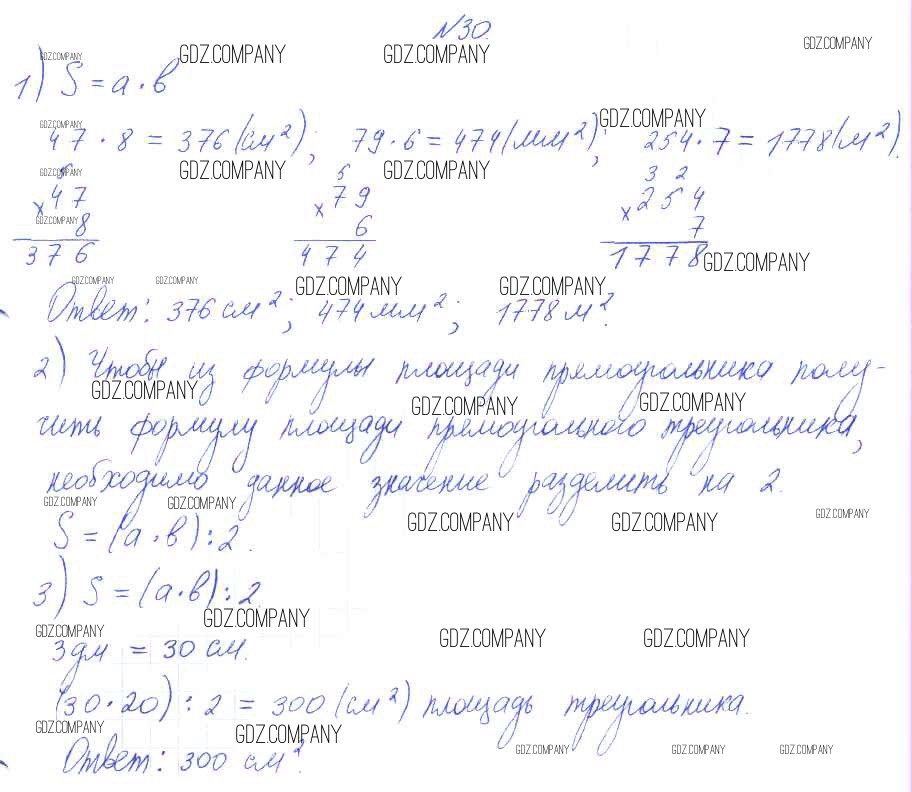 N30.
GDZ.COMPANY GDZ.COMPANY GDZ.COMPANY GDZ.COMPANY
1) S = a · в
GDZ.COMPANY GDZ.COMPANY
47 · 8 = 376 (см²); 79 · 6 = 474 (мм²); 254 · 7 = 1778 (м²).
GDZ.COMPANY GDZ.COMPANY GDZ.COMPANY
5 5 3 2
× 47 × 79 × 254
GDZ.COMPANY
8 6 7
376 474 1778
GDZ.COMPANY
GDZ.COMPANY GDZ.COMPANY GDZ.COMPANY GDZ.COMPANY
Ответ: 376 см²; 474 мм²; 1778 м².
2) Чтобы из формулы площади прямоугольника полу-
GDZ.COMPANY GDZ.COMPANY GDZ.COMPANY
чить формулу площади прямоугольного треугольника,
необходимо данное значение разделить на 2.
GDZ.COMPANY GDZ.COMPANY GDZ.COMPANY GDZ.COMPANY GDZ.COMPANY
S = (a · в) : 2.
3) S = (a · в) : 2.
GDZ.COMPANY GDZ.COMPANY GDZ.COMPANY GDZ.COMPANY
3 дм = 30 см.
(30 · 20) : 2 = 300 (см²) площадь треугольника.
GDZ.COMPANY GDZ.COMPANY GDZ.COMPANY GDZ.COMPANY GDZ.COMPANY
Ответ: 300 см².